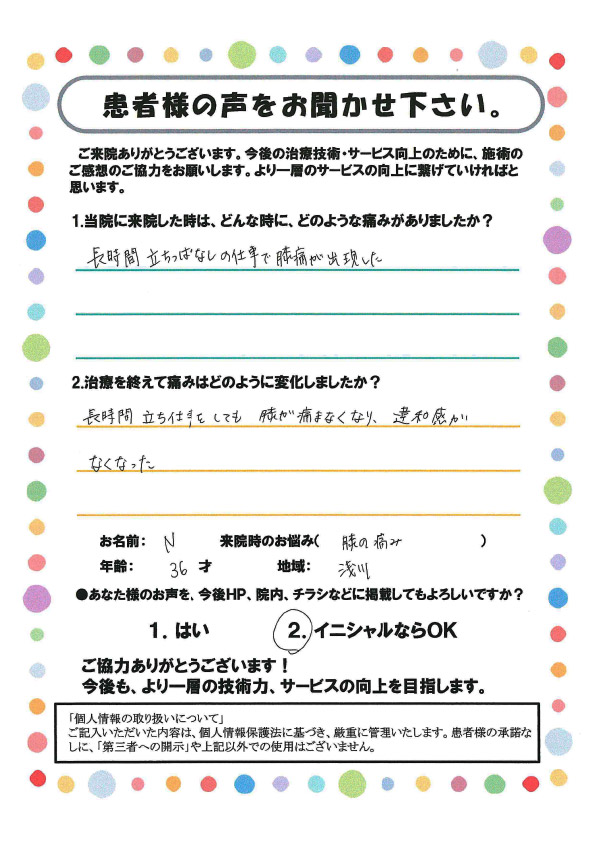 患者様の声をお聞かせ下さい。
ご来院ありがとうございます。今後の治療技術・サービス向上のために、施術の
ご感想のご協力をお願いします。より一層のサービスの向上に繋げていければと
思います。
1.当院に来院した時は、どんな時に、どのような痛みがありましたか？
長時間 立ちっぱなしの仕事で膝痛が出現した
2.治療を終えて痛みはどのように変化しましたか？
長時間 立ち仕事をしても 膝が痛まなくなり、違和感が
なくなった
お名前： N 来院時のお悩み( 膝の痛み )
年齢： 36 才 地域： 浅川
●あなた様のお声を、今後HP、院内、チラシなどに掲載してもよろしいですか？
1. はい 2. イニシャルならOK
ご協力ありがとうございます！
今後も、より一層の技術力、サービスの向上を目指します。
「個人情報の取り扱いについて」
ご記入いただいた内容は、個人情報保護法に基づき、厳重に管理いたします。患者様の承諾な
しに、「第三者への開示」や上記以外での使用はございません。